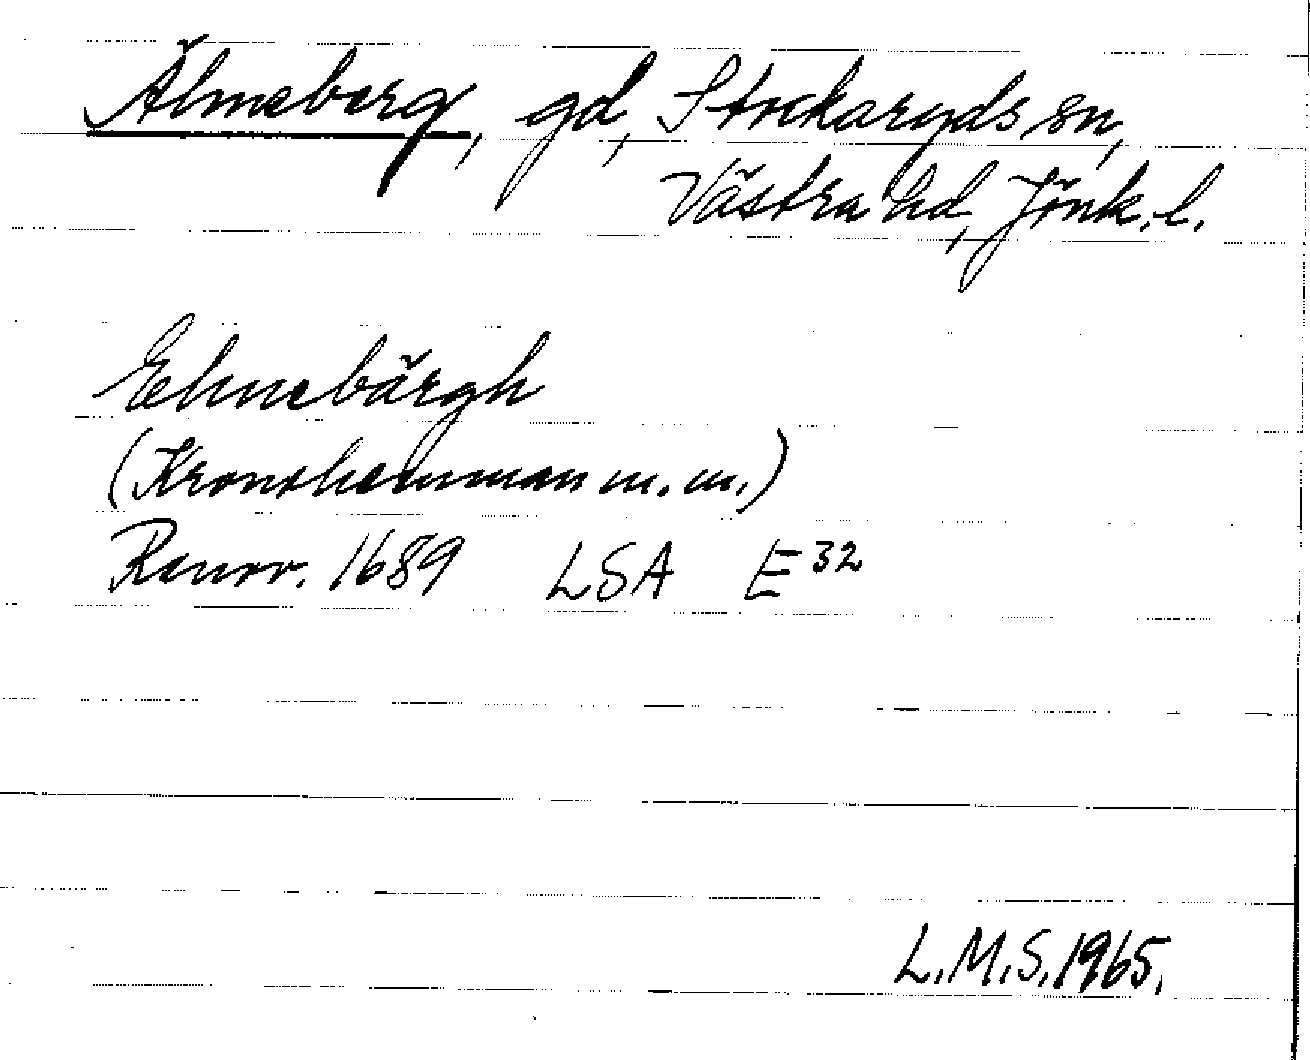 Älmeberg, gd, Stockaryds sn,
Västra hd, Jönk. l.
Elmebärgh
(Kronohemman m. m.)
Renov. 1689 LSA E 32
L.M.S. 1965.